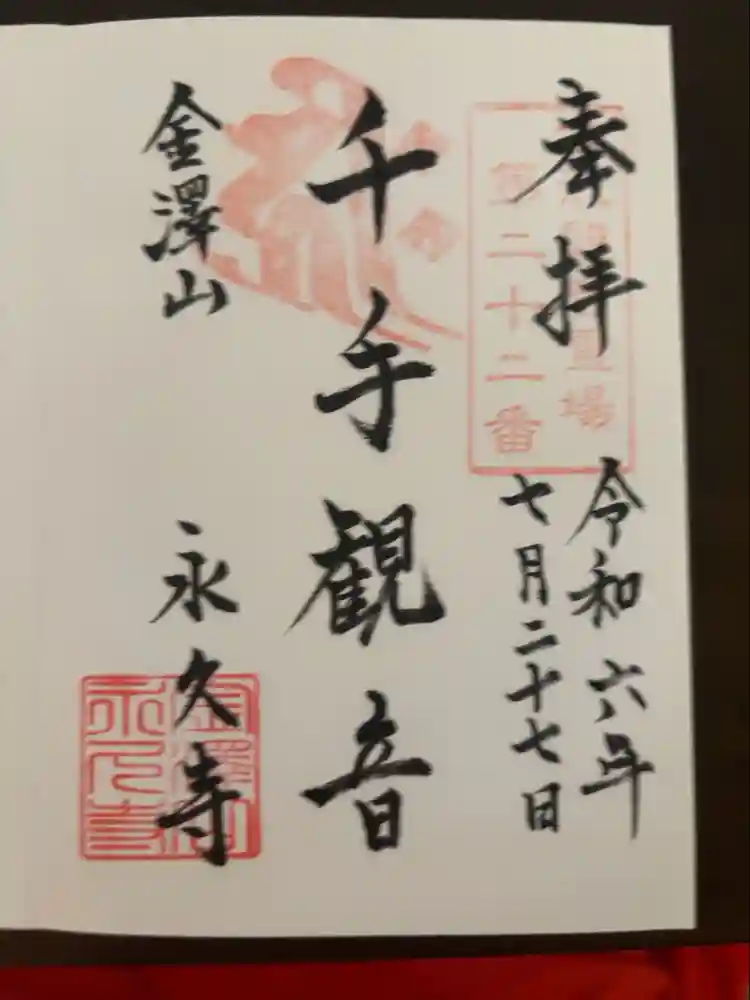 奉拝
霊場
第二十二番
令和六年
七月二十七日
千手観音
金澤山
永久寺
金澤山
永久寺